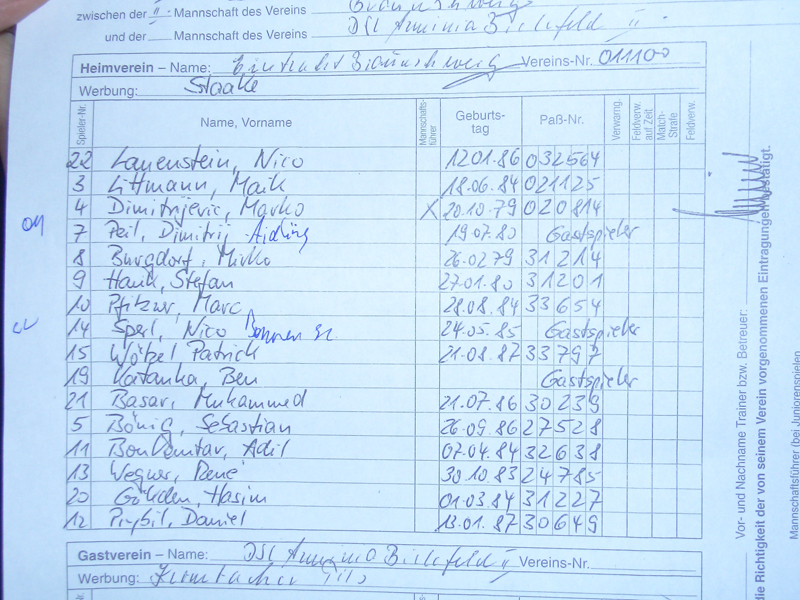 zwischen der II. Mannschaft des Vereins Braunschweig
und der Mannschaft des Vereins DSC Arminia Bielefeld II.
Heimverein – Name: Eintracht Braunschweig Vereins-Nr. 011100
Werbung: Staake
Spieler-Nr. Name, Vorname Mannschafts-führer Geburts-tag Paß-Nr. Verwarng. Feldverw. auf Zeit Match-Strafe Feldverw.
22 Lauenstein, Nico 12.01.86 032564
3 Littmann, Maik 18.06.84 021125
4 Dimitrijevic, Marko X 20.10.79 020814
7 Peil, Dimitrij 19.07.80 Gastspieler
8 Burgdorf, Mirko 26.02.79 31214
9 Hauk, Stefan 27.01.80 31201
10 Pfitzner, Marc 28.08.84 33654
14 Sperl, Nico 24.05.85 Gastspieler
15 Wötzel Patrick 21.08.87 33797
19 Katanka, Ben Gastspieler
21 Basar, Muhammed 21.07.86 30239
5 Bönig, Sebastian 26.09.86 27528
11 BouDonitar, Adil 07.04.84 32638
13 Wegner, René 30.10.83 24785
20 Hasim 01.03.84 31227
12 Daniel 13.01.87 30649
Gastverein – Name: DSC Arminia Bielefeld II Vereins-Nr.
Werbung: Krombacher Pils
Vor- und Nachname Trainer bzw. Betreuer:
die Richtigkeit der von seinem Verein vorgenommenen Eintragungen bestätigt.
Mannschaftsführer (bei Juniorenspielen